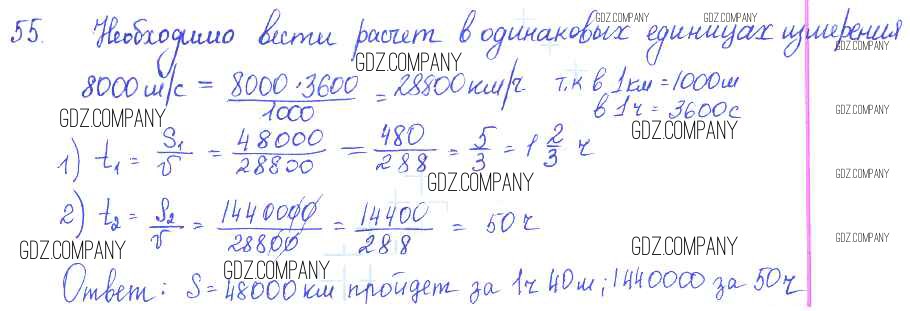 GDZ.COMPANY GDZ.COMPANY
55. Необходимо вести расчет в одинаковых единицах измерения
GDZ.COMPANY
GDZ.COMPANY
8000 м/с = 8000·3600/1000 = 28800 км/ч т.к в 1км = 1000м
в 1ч = 3600с
GDZ.COMPANY
GDZ.COMPANY
GDZ.COMPANY
1) t₁ = S₁/v = 48000/28800 = 480/288 = 5/3 = 1 2/3 ч
GDZ.COMPANY
GDZ.COMPANY
2) t₂ = S₂/v = 1440000/28800 = 14400/288 = 50ч
GDZ.COMPANY
GDZ.COMPANY
GDZ.COMPANY
GDZ.COMPANY
Ответ: S = 48000 км пройдет за 1ч 40м; 1440000 за 50ч